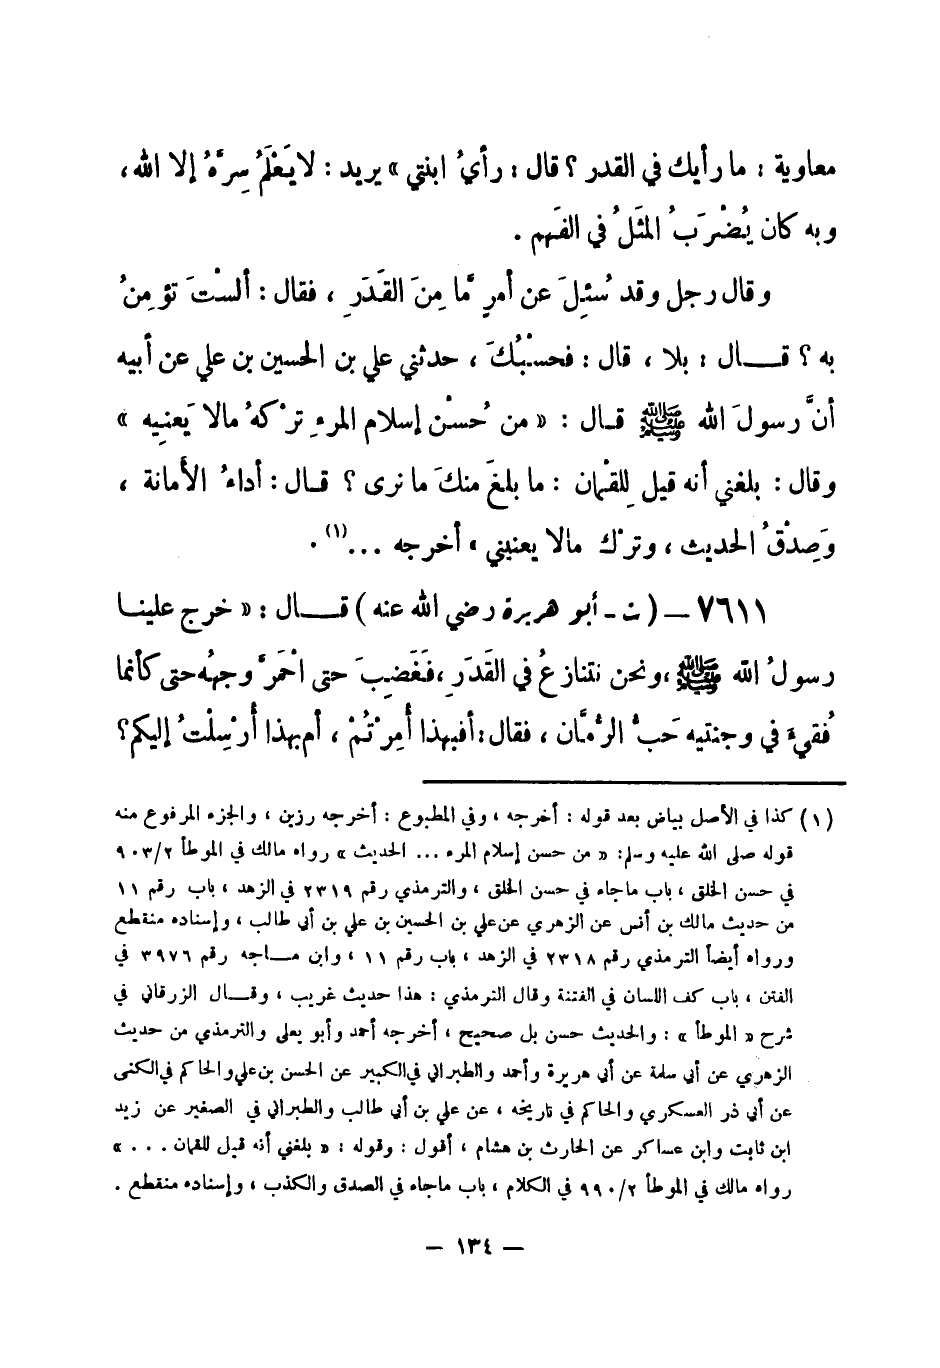 معاوية : ما رأيك في القدر ؟ قال : رأيُ ابنتي » يريد : لا يَعْلَمُ سِرَّهُ إلا الله ،
وبه كان يُضْرَبُ المثَلُ في الفَهم .
وقال رجل وقد سُئِلَ عن أمرٍ مَّا مِنَ القَدَرِ ، فقال : ألستَ تؤمِنُ
به ؟ قـــال : بلا ، قال : فحسْبُكَ ، حدثني علي بن الحسين بن علي عن أبيه
أنَّ رسولَ الله ﷺ قــال : « من حُسْنِ إسلام المرءِ ترْكهُ مالا يَعنِيه »
وقال : بلغني أنه قيل لِلقْمان : ما بلغَ منكَ ما نرى ؟ قــال : أداءُ الأمانة ،
وَصِدْقُ الحديث ، وترْك مالا يعنيني ، أخرجه ...(١) .
٧٦١١ – ( ت - أبو هريرة رضي الله عنه ) قـــال : « خرج علينـا
رسولُ الله ﷺ ، ونحن نتنازعُ في القَدَرِ ، فَغَضِبَ حتى احْمَرَّ وجهُه حتى كأنما
فُقِيءَ في وجنتيه حَبُّ الرُّمَّان ، فقال : أفبهذا أُمِرْتُمْ ، أم بهذا أُرْسِلْتُ إليكم ؟
(١) كذا في الأصل بياض بعد قوله : أخرجه ، وفي المطبوع : أخرجه رزين ، والجزء المرفوع منه
قوله صلى الله عليه وسلم : « من حسن إسلام المرء ... الحديث » رواه مالك في الموطأ ٩٠٣/٢
في حسن الخلق ، باب ماجاء في حسن الخلق ، والترمذي رقم ٢٣١٩ في الزهد ، باب رقم ١١
من حديث مالك بن أنس عن الزهري عن علي بن الحسين بن علي بن أبي طالب ، وإسناده منقطع
ورواه أيضاً الترمذي رقم ٢٣١٨ في الزهد ، باب رقم ١١ ، وابن مـاجه رقم ٣٩٧٦ في
الفتن ، باب كف اللسان في الفتنة وقال الترمذي : هذا حديث غريب ، وقــال الزرقاني في
شرح « الموطأ » : والحديث حسن بل صحيح ، أخرجه أحمد وأبو يعلى والترمذي من حديث
الزهري عن أبي سلمة عن أبي هريرة وأحمد والطبراني في الكبير عن الحسن بن علي والحاكم في الكنى
عن أبي ذر العسكري والحاكم في تاريخه ، عن علي بن أبي طالب والطبراني في الصغير عن زيد
ابن ثابت وابن عساكر عن الحارث بن هشام ، أقول : وقوله : « بلغني أنه قيل للقمان . . . »
رواه مالك في الموطأ ٩٩٠/٢ في الكلام ، باب ماجاء في الصدق والكذب ، وإسناده منقطع .
– ١٣٤ –